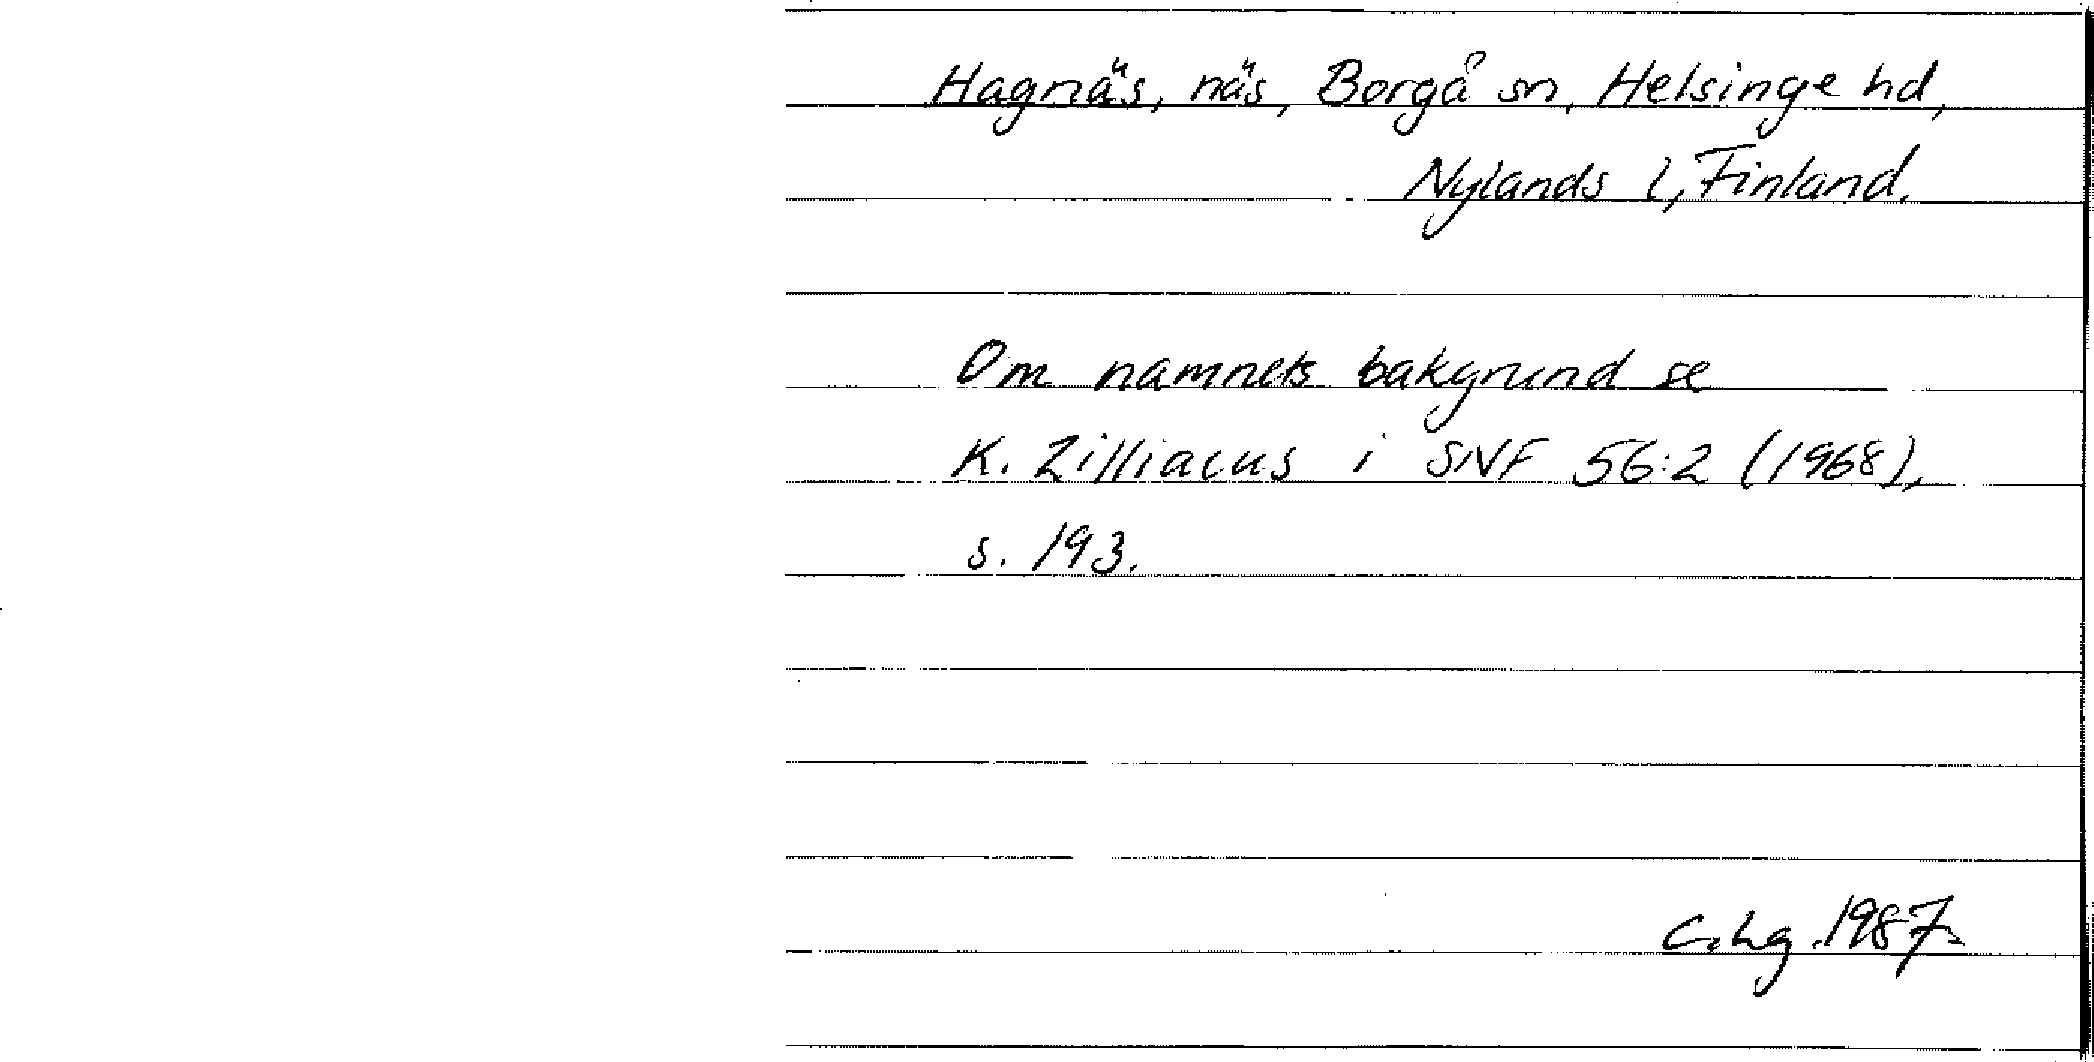 Hagnäs, näs, Borgå sn, Helsinge hd,
Nylands l, Finland.
Om namnets bakgrund se
K. Zilliacus i SNF 56:2 (1968),
s. 193.
C.Lg. 1987.